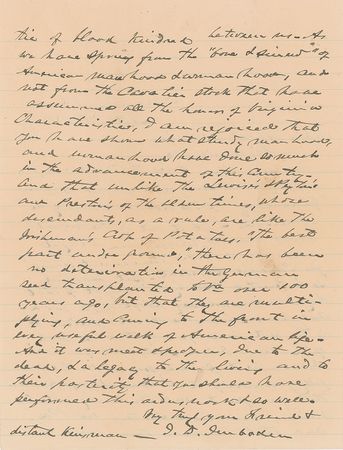 tie of blood kindred between us. As
we have sprung from the "bone & sinew" of
American manhood & womanhood, and
not from the Cavalier stock that have
assumed all the honors of Virginia
Characteristics, I am rejoiced that
you have shown what sturdy manhood,
and womanhood have done so much
in the advancement of this Country.
And that unlike the Lewis's
and Prestons of the olden times, whose
descendants, as a rule, are like the
Irishman's Crop of Potatoes, "the best
part under ground," there has been
no deterioration in the German
seed transplanted to Va over 100
years ago, but that they are multi-
plying, and Coming to the front in
every useful walk of American life.
And it was meet & proper, due to the
dead, & a legacy to the living and to
their posterity that you should have
performed this arduous work & so well.
Very truly your Friend &
distant Kinsman — J. D. Imboden